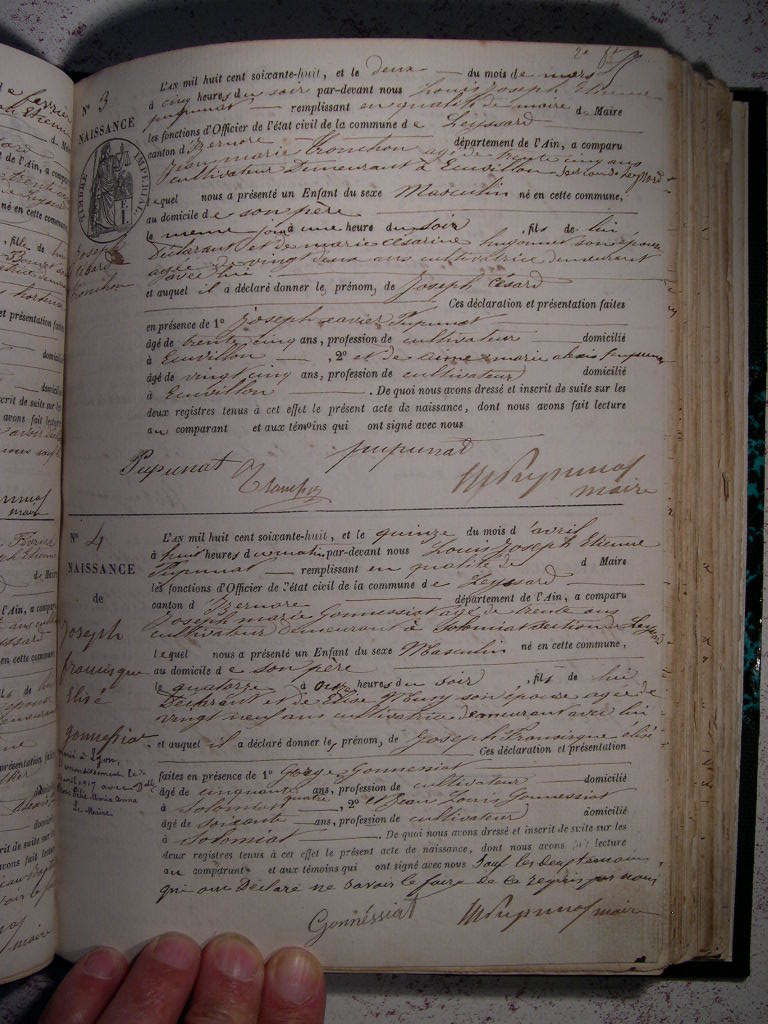 2e ft
N° 3
NAISSANCE
TIMBRE IMPERIAL
Joseph
César
Tronchon
L'AN mil huit cent soixante-huit, et le deux du mois de mars
à cinq heures du soir par-devant nous Louis Joseph Etienne
pupunat remplissant en qualité de maire d Maire
les fonctions d'Officier de l'état civil de la commune de Leyssard
canton d'Izernore département de l'Ain, a comparu
Jean marie Tronchon agé de trente cinq ans
cultivateur Demeurant à Euvillon section de Leyssard
lequel nous a présenté un Enfant du sexe Masculin né en cette commune,
au domicile de son père
le même jour à une heure du soir , fils de lui
Déclarant et de marie césarine hugonnet son épouse
agée de vingt deux ans cultivatrice demeurant
avec lui
et auquel il a déclaré donner le prénom, de Joseph César
Ces déclaration et présentation faites
en présence de 1° Joseph xavier Pupunat
âgé de trente cinq ans, profession de cultivateur domicilié
à Euvillon , 2° et de aimé marie pupunat
âgé de vingt cinq ans, profession de cultivateur domicilié
à Euvillon . De quoi nous avons dressé et inscrit de suite sur les
deux registres tenus à cet effet le présent acte de naissance, dont nous avons fait lecture
au comparant et aux témoins qui ont signé avec nous
pupunat
Pupunat Tronchon Pupunat
maire
N° 4
NAISSANCE
de
Joseph
françisque
Elisé
Gonnessiat
marié à Lyon,
arrondissement le
avril 1917 avec
Marie Anna
Le Maire
L'AN mil huit cent soixante-huit, et le quinze du mois d'avril
à huit heures du matin par-devant nous Louis Joseph Etienne
Pupunat remplissant en qualité de d Maire
les fonctions d'Officier de l'état civil de la commune de Leyssard
canton d'Izernore département de l'Ain, a comparu
Joseph marie Gonnessiat agé de trente ans
cultivateur demeurant à Solomiat section de Leyssard
lequel nous a présenté un Enfant du sexe Masculin né en cette commune,
au domicile de son père
le quatorze à onze heures du soir , fils de lui
Déclarant et de Elise Muny son épouse agée de
vingt neuf ans cultivatrice demeurant avec lui
et auquel il a déclaré donner le prénom, de Joseph Françisque élisé
Ces déclaration et présentation
faites en présence de 1° George Gonnessiat
âgé de cinquante quatre ans, profession de cultivateur domicilié
à Solomiat , 2° et Jean Louis Gonnessiat
âgé de soixante ans, profession de cultivateur domicilié
à Solomiat . De quoi nous avons dressé et inscrit de suite sur les
deux registres tenus à cet effet le présent acte de naissance, dont nous avons fait lecture
au comparant et aux témoins qui ont signé avec nous sauf les deux témoins
qui ont Déclaré ne savoir le faire de ce requis par nous
Gonnéssiat Pupunat maire